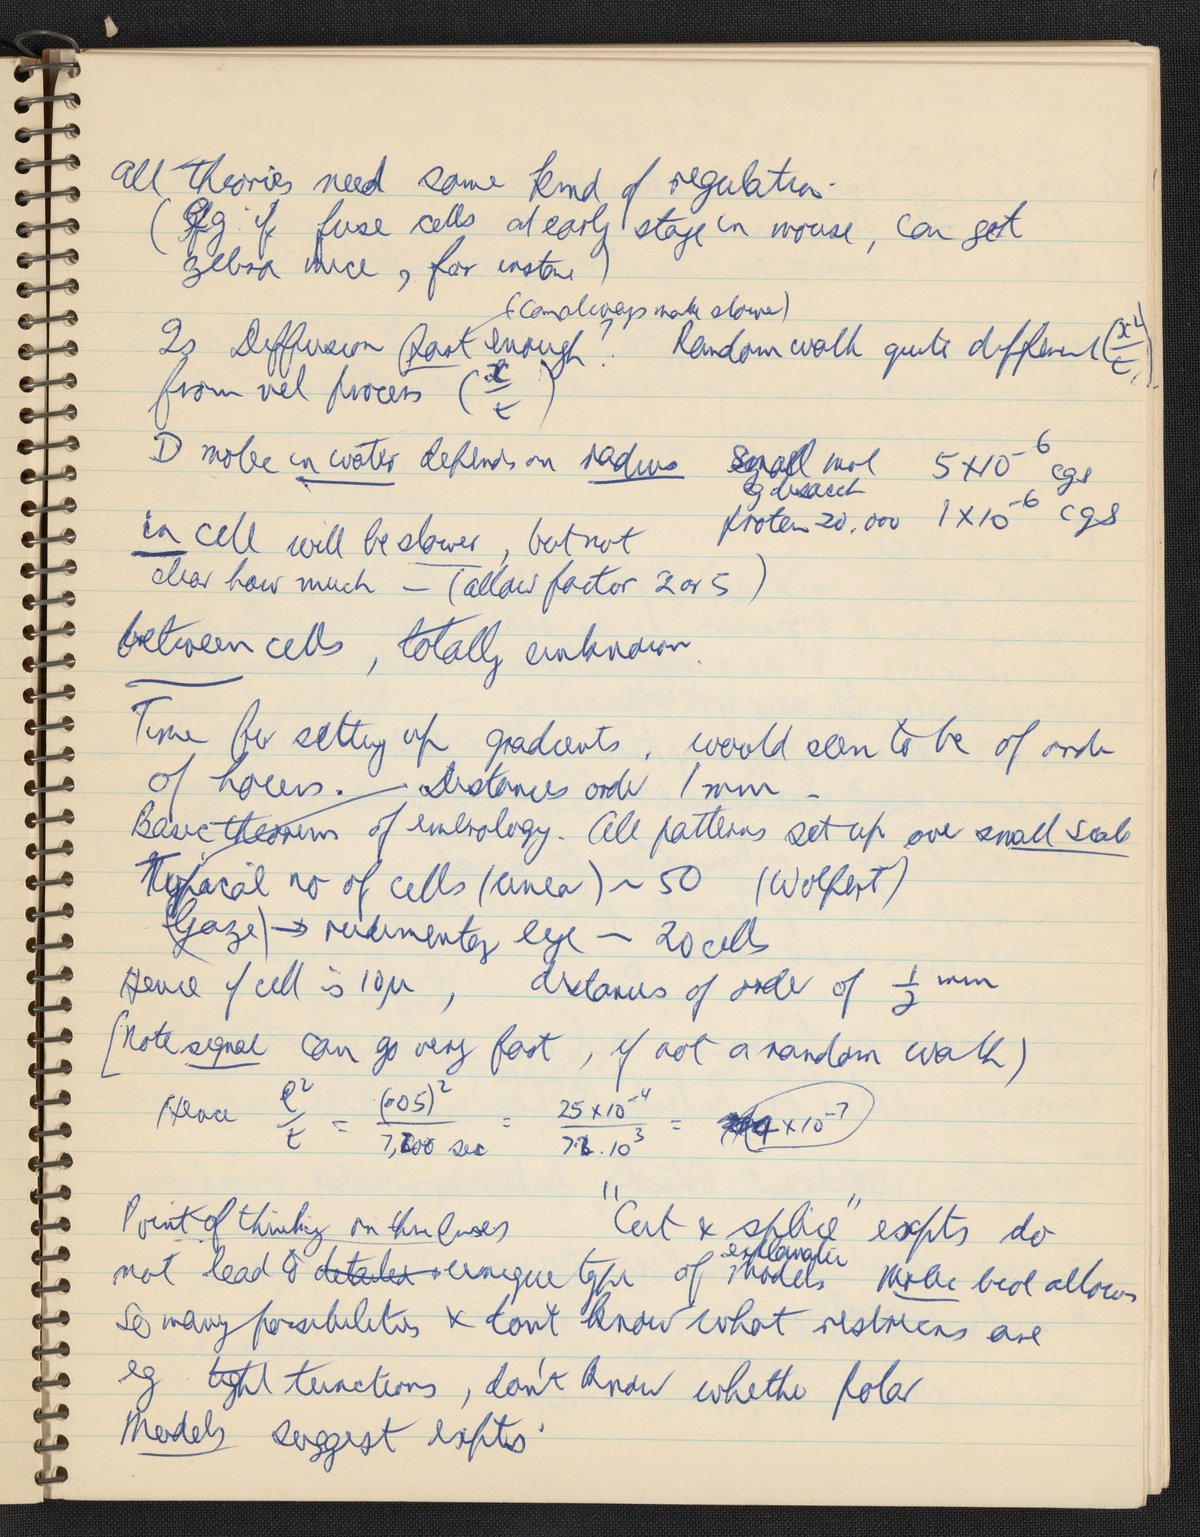 All theories need some kind of regulation.
(Eg. if fuse cells at early stage in mouse, can get
zebra mice, for instance)
(can always make slower)
Is Diffusion fast enough? Random walk quite different (x²/t)
from vel process (x/t)
D molec in water depends on radius small mol 5 × 10⁻⁶ cgs
eg disacch
protein 20,000 1 × 10⁻⁶ cgs
in cell will be slower, but not
clear how much – (allow factor 2 or 5)
between cells, totally unknown.
Time for setting up gradients, would seem to be of order
of hours. – Distances order 1 mm –
Basic theorem of embryology. All patterns set up over small scale
Typical no of cells (linear) ~ 50 (Wolpert)
(Gaze) → rudimentary eye ~ 20 cells
Hence if cell is 10μ, distances of order of 1/2 mm
[Note signal can go very fast, if not a random walk)
Hence l²/t = (.05)²/7,200 sec = 25 × 10⁻⁴/7.2 . 10³ = 4 × 10⁻⁷
Point of thinking on these lines "Cut & splice" expts do
not lead to detailed unique type of explanatory models Molec biol allows
so many possibilities & don't know what restrictions are
eg tight junctions, don't know whether polar
Models suggest expts.